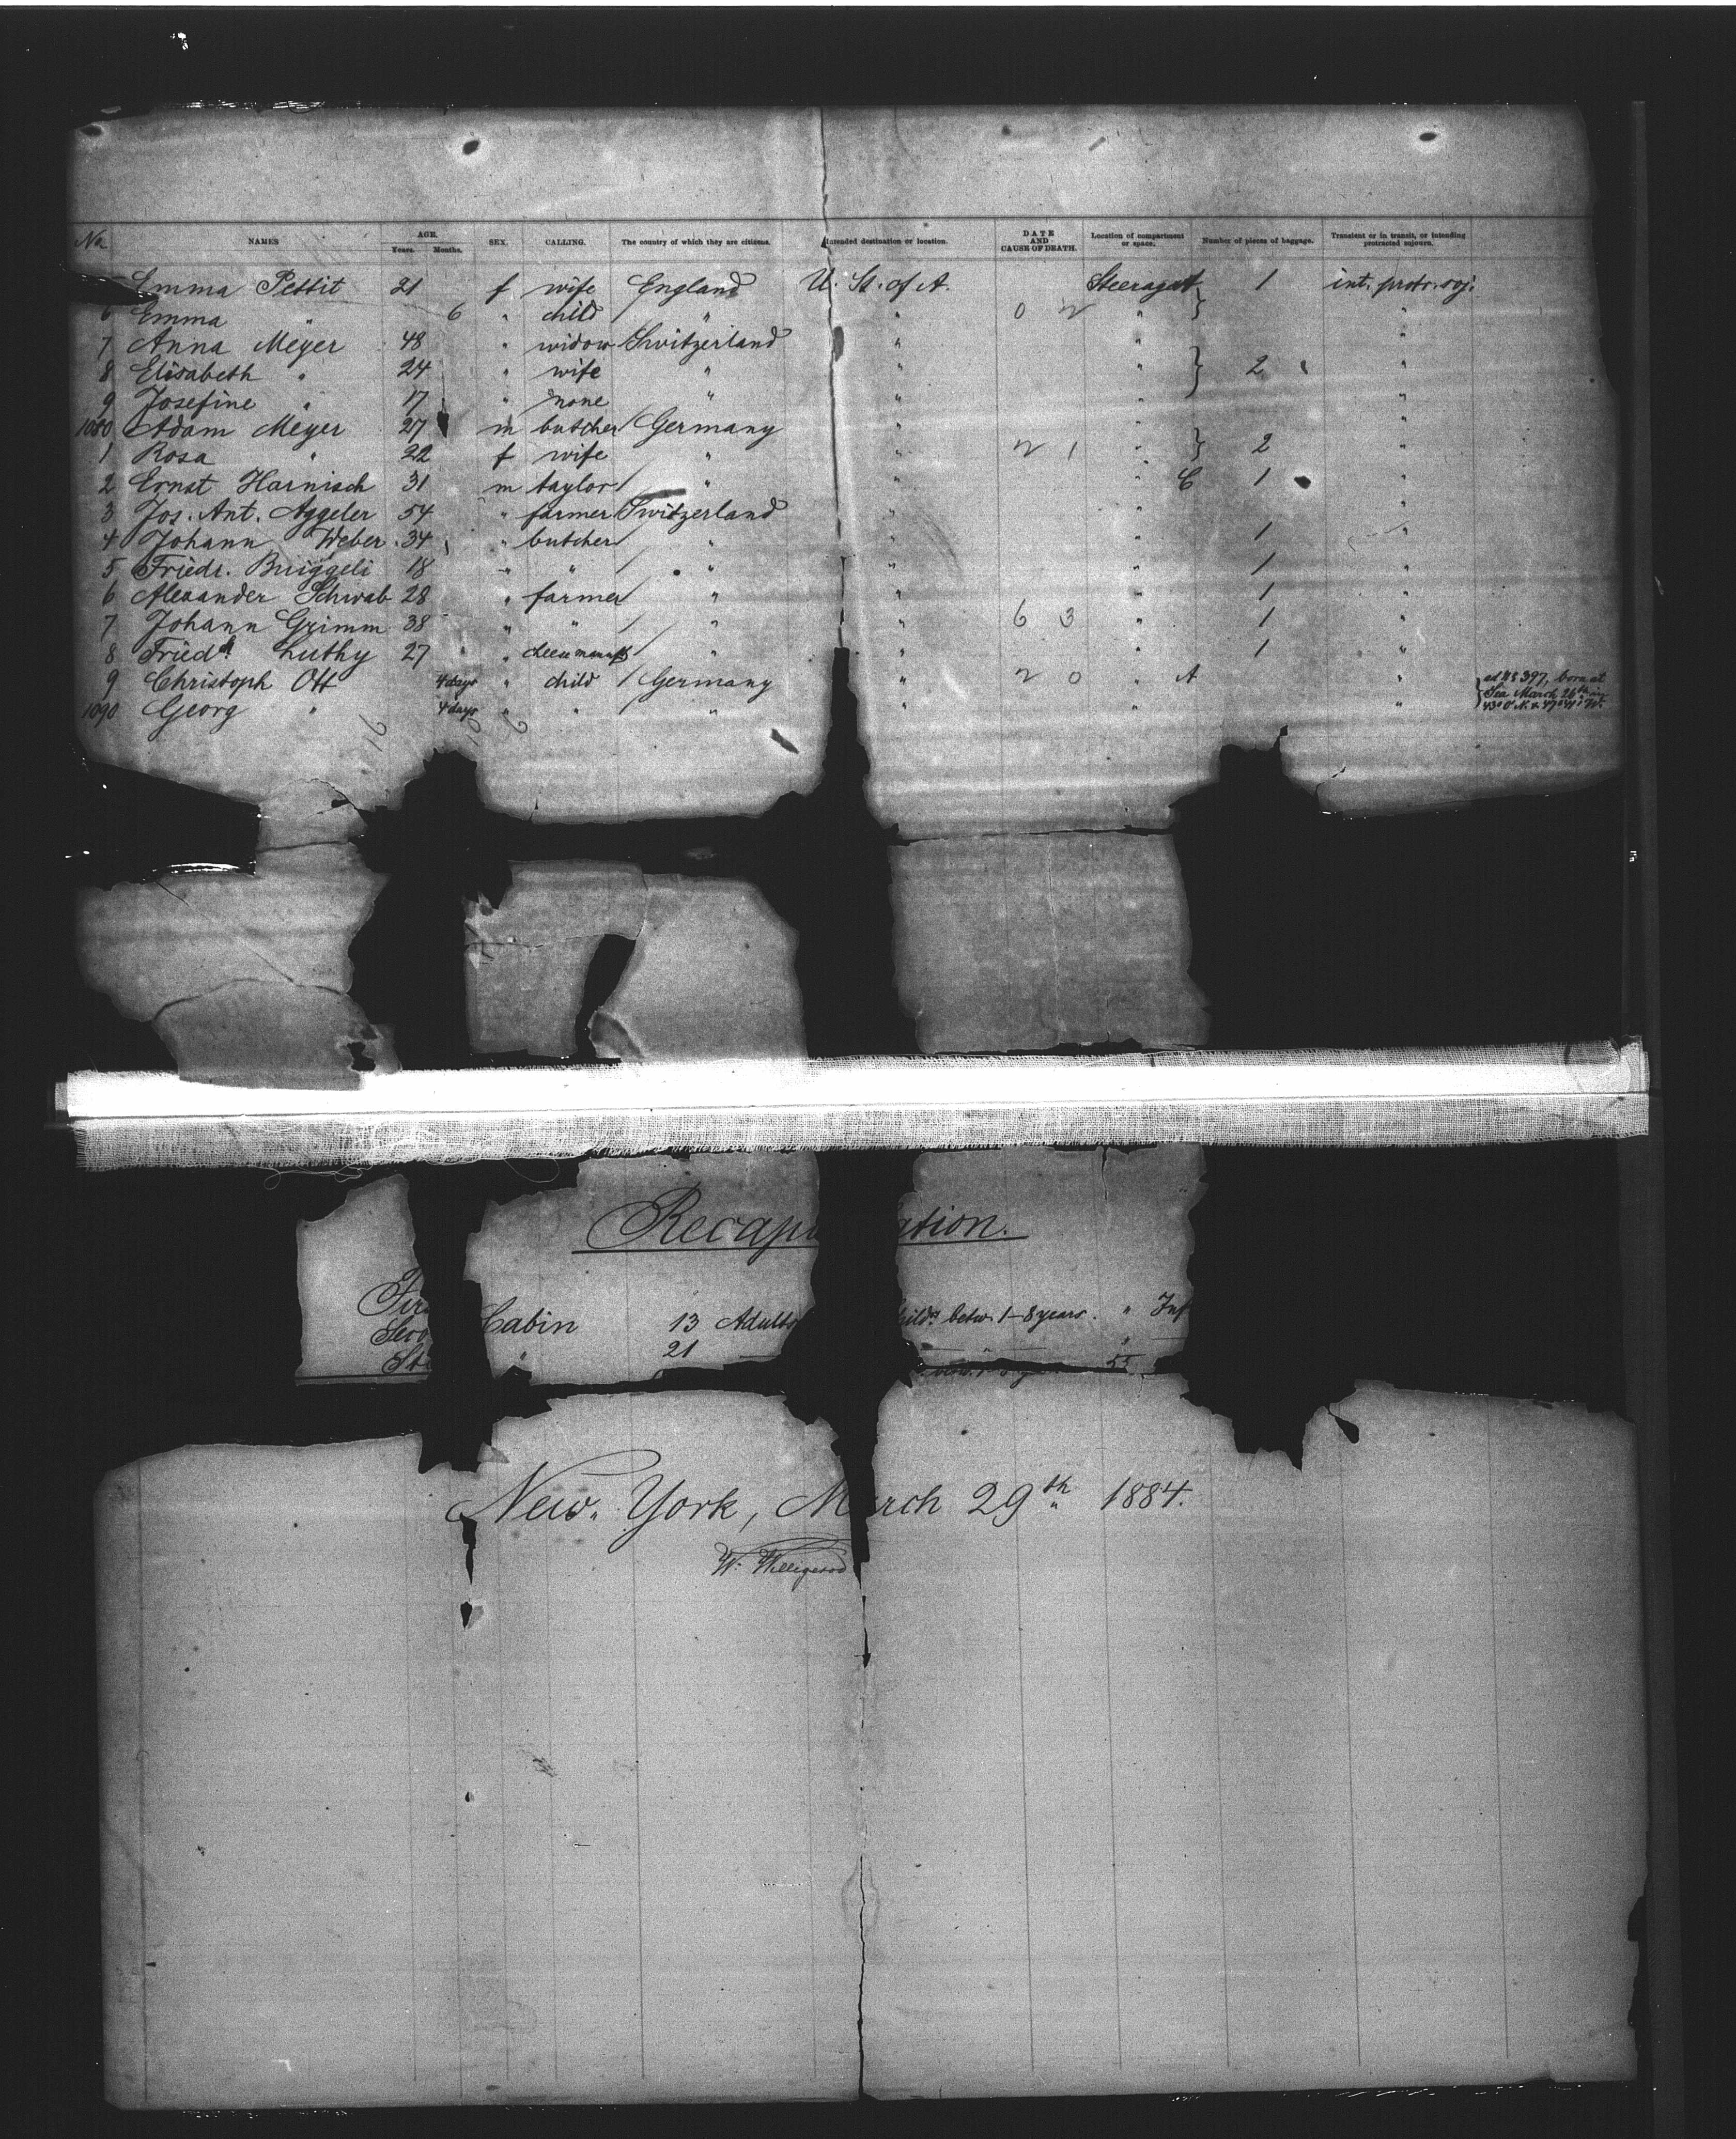 No. NAMES AGE. Years. Months. SEX. CALLING. The country of which they are citizens. Intended destination or location. DATE AND CAUSE OF DEATH. Location of compartment or space. Number of pieces of baggage. Transient or in transit, or intending protracted sojourn.
Emma Pettit 21 f wife England U. St. of A. Steerage A 1 int. protr. soj.
6 Emma " 6 " child " " 0 2 " "
7 Anna Meyer 48 " widow Switzerland " " "
8 Elisabeth " 24 " wife " " " 2 "
9 Josefine " 17 " none " " " "
1080 Adam Meyer 27 m butcher Germany " " "
1 Rosa " 22 f wife " " 2 1 " 2 "
2 Ernst Harnisch 31 m taylor " " C 1 "
3 Jos. Ant. Aggeler 54 " farmer Switzerland " " "
4 Johann Weber 34 " butcher " " " 1 "
5 Friedr. 18 " " " " " 1 "
6 Alexander Schwab 28 " farmer " " " 1 "
7 Johann Grimm 38 " " " " 6 3 " 1 "
8 Friedh. Luthy 27 " " " " 1 "
9 Christoph Ott 4 days " child Germany " 2 0 " A " ad No 397, born at
1090 Georg " 4 days " " " " " Sea March 26th in
43° 0' N. & 47° 41' W.
Recapu ation.
Fir Cabin 13 Adults hildr. betw. 1-8 years. " Inf
Seco " 21 " "
St 55
New York, March 29th 1884.
W. Willigerod